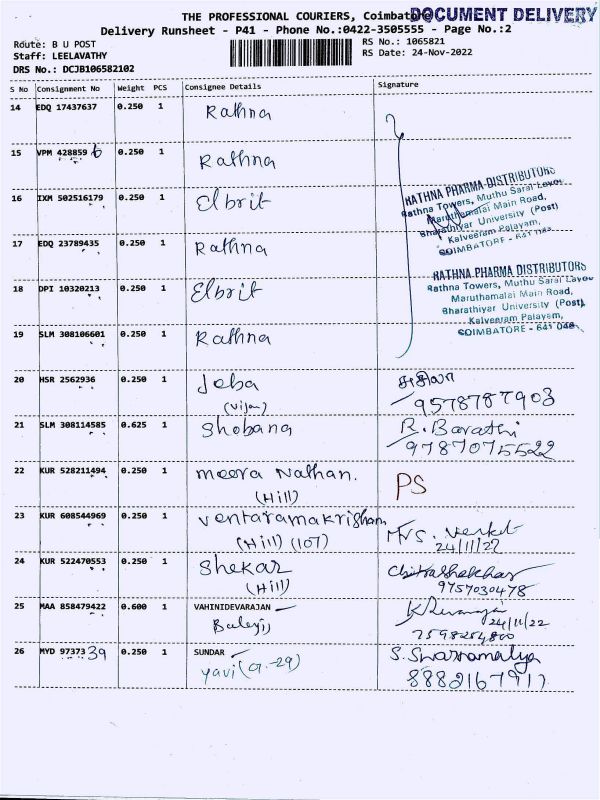 THE PROFESSIONAL COURIERS, Coimbatore
DOCUMENT DELIVERY
Delivery Runsheet - P41 - Phone No.:0422-3505555 - Page No.:2
Route: B U POST
RS No.: 1065821
Staff: LEELAVATHY
RS Date: 24-Nov-2022
DRS No.: DCJB106582102
S No Consignment No Weight PCS Consignee Details Signature
14 EDQ 17437637 0.250 1 Rathna
15 VPM 428859 6 0.250 1 Rathna
16 IXM 502516179 0.250 1 Elbrit
17 EDQ 23789435 0.250 1 Rathna
18 DPI 10320213 0.250 1 Elbrit
19 SLM 308106601 0.250 1 Rathna
RATHNA PHARMA DISTRIBUTORS
Rathna Towers, Muthu Sarai Layout
Maruthamalai Main Road,
Bharathiyar University (Post)
Kalveeram Palayam,
COIMBATORE - 641 046
RATHNA PHARMA DISTRIBUTORS
Rathna Towers, Muthu Sarai Layou
Maruthamalai Main Road,
Bharathiyar University (Post),
Kalveeram Palayam,
COIMBATORE - 641 046
20 HSR 2562936 0.250 1 Jeba சுசிலா
(Vijay) 9578787903
21 SLM 308114585 0.625 1 Shobana R. Barathi
9787075522
22 KUR 528211494 0.250 1 meera Nathan. PS
(Hill)
23 KUR 608544969 0.250 1 Ventaramakrishnan Mrs. Venkat
(Hill) (107) 24/11/22
24 KUR 522470553 0.250 1 Shekar Chitrashekhar
(Hill) 9757030478
25 MAA 858479422 0.600 1 VAHINIDEVARAJAN
Balaji 24/11/22
7598254800
26 MYD 9737339 0.250 1 SUNDAR
yavi (G-29) 8882167917